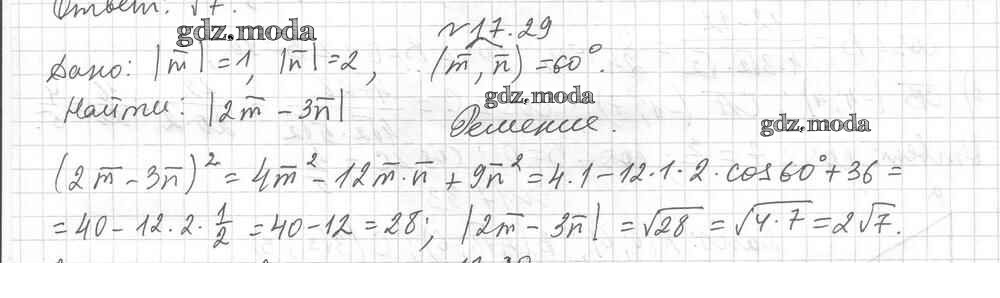 Ответ: √7.
gdz.moda № 17.29
Дано: |m̅| = 1, |n̅| = 2, (m̅, n̅) = 60°.
Найти: |2m̅ - 3n̅| gdz.moda
Решение. gdz.moda
(2m̅ - 3n̅)² = 4m̅² - 12m̅·n̅ + 9n̅² = 4·1 - 12·1·2·cos60° + 36 =
= 40 - 12·2·1/2 = 40 - 12 = 28; |2m̅ - 3n̅| = √28 = √4·7 = 2√7.